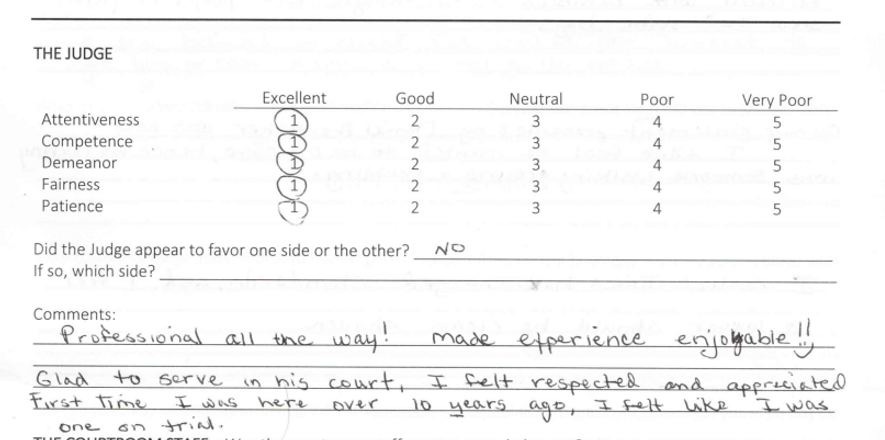 THE JUDGE
Excellent Good Neutral Poor Very Poor
Attentiveness 1 2 3 4 5
Competence 1 2 3 4 5
Demeanor 1 2 3 4 5
Fairness 1 2 3 4 5
Patience 1 2 3 4 5
Did the Judge appear to favor one side or the other? NO
If so, which side?
Comments:
Professional all the way! made experience enjoyable!!
Glad to serve in his court, I felt respected and appreciated
First Time I was here over 10 years ago, I felt like I was
one on trial.